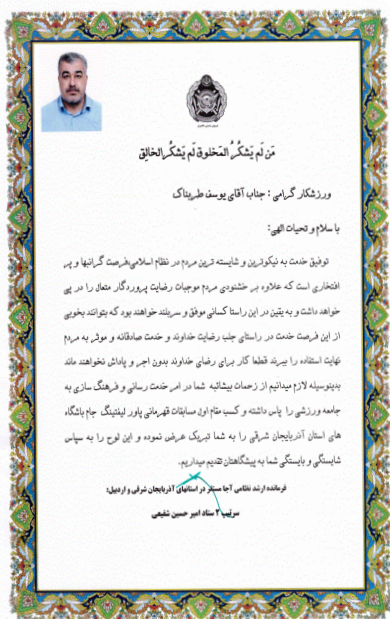 مَن لَم یَشکُرُ المَخلوق لَم یَشکُرِ الخالِق
ورزشکار گرامی : جناب آقای یوسف طربناک
با سلام و تحیات الهی:
توفیق خدمت به نیکوترین و شایسته ترین مردم در نظام اسلامی،فرصت گرانبها و پر
افتخاری است که علاوه بر خشنودی مردم موجبات رضایت پروردگار متعال را در پی
خواهد داشت و به یقین در این راستا کسانی موفق و سربلند خواهند بود که بتوانند بخوبی
از این فرصت خدمت در راستای جلب رضایت خداوند و خدمت صادقانه و موثر به مردم
نهایت استفاده را ببرند قطعا کار برای رضای خداوند بدون اجر و پاداش نخواهند ماند
بدینوسیله لازم میدانیم از زحمات بیشائبه شما در امر خدمت رسانی و فرهنگ سازی به
جامعه ورزشی را پاس داشته و کسب مقام اول مسابقات قهرمانی پاور لیفتینگ جام باشگاه
های استان آذربایجان شرقی را به شما تبریک عرض نموده و این لوح را به سپاس
شایستگی و بایستگی شما به پیشگاهتان تقدیم میداریم.
فرمانده ارشد نظامی آجا مستقر در استانهای آذربایجان شرقی و اردبیل؛
سرتیپ ۲ ستاد امیر حسین شفیعی